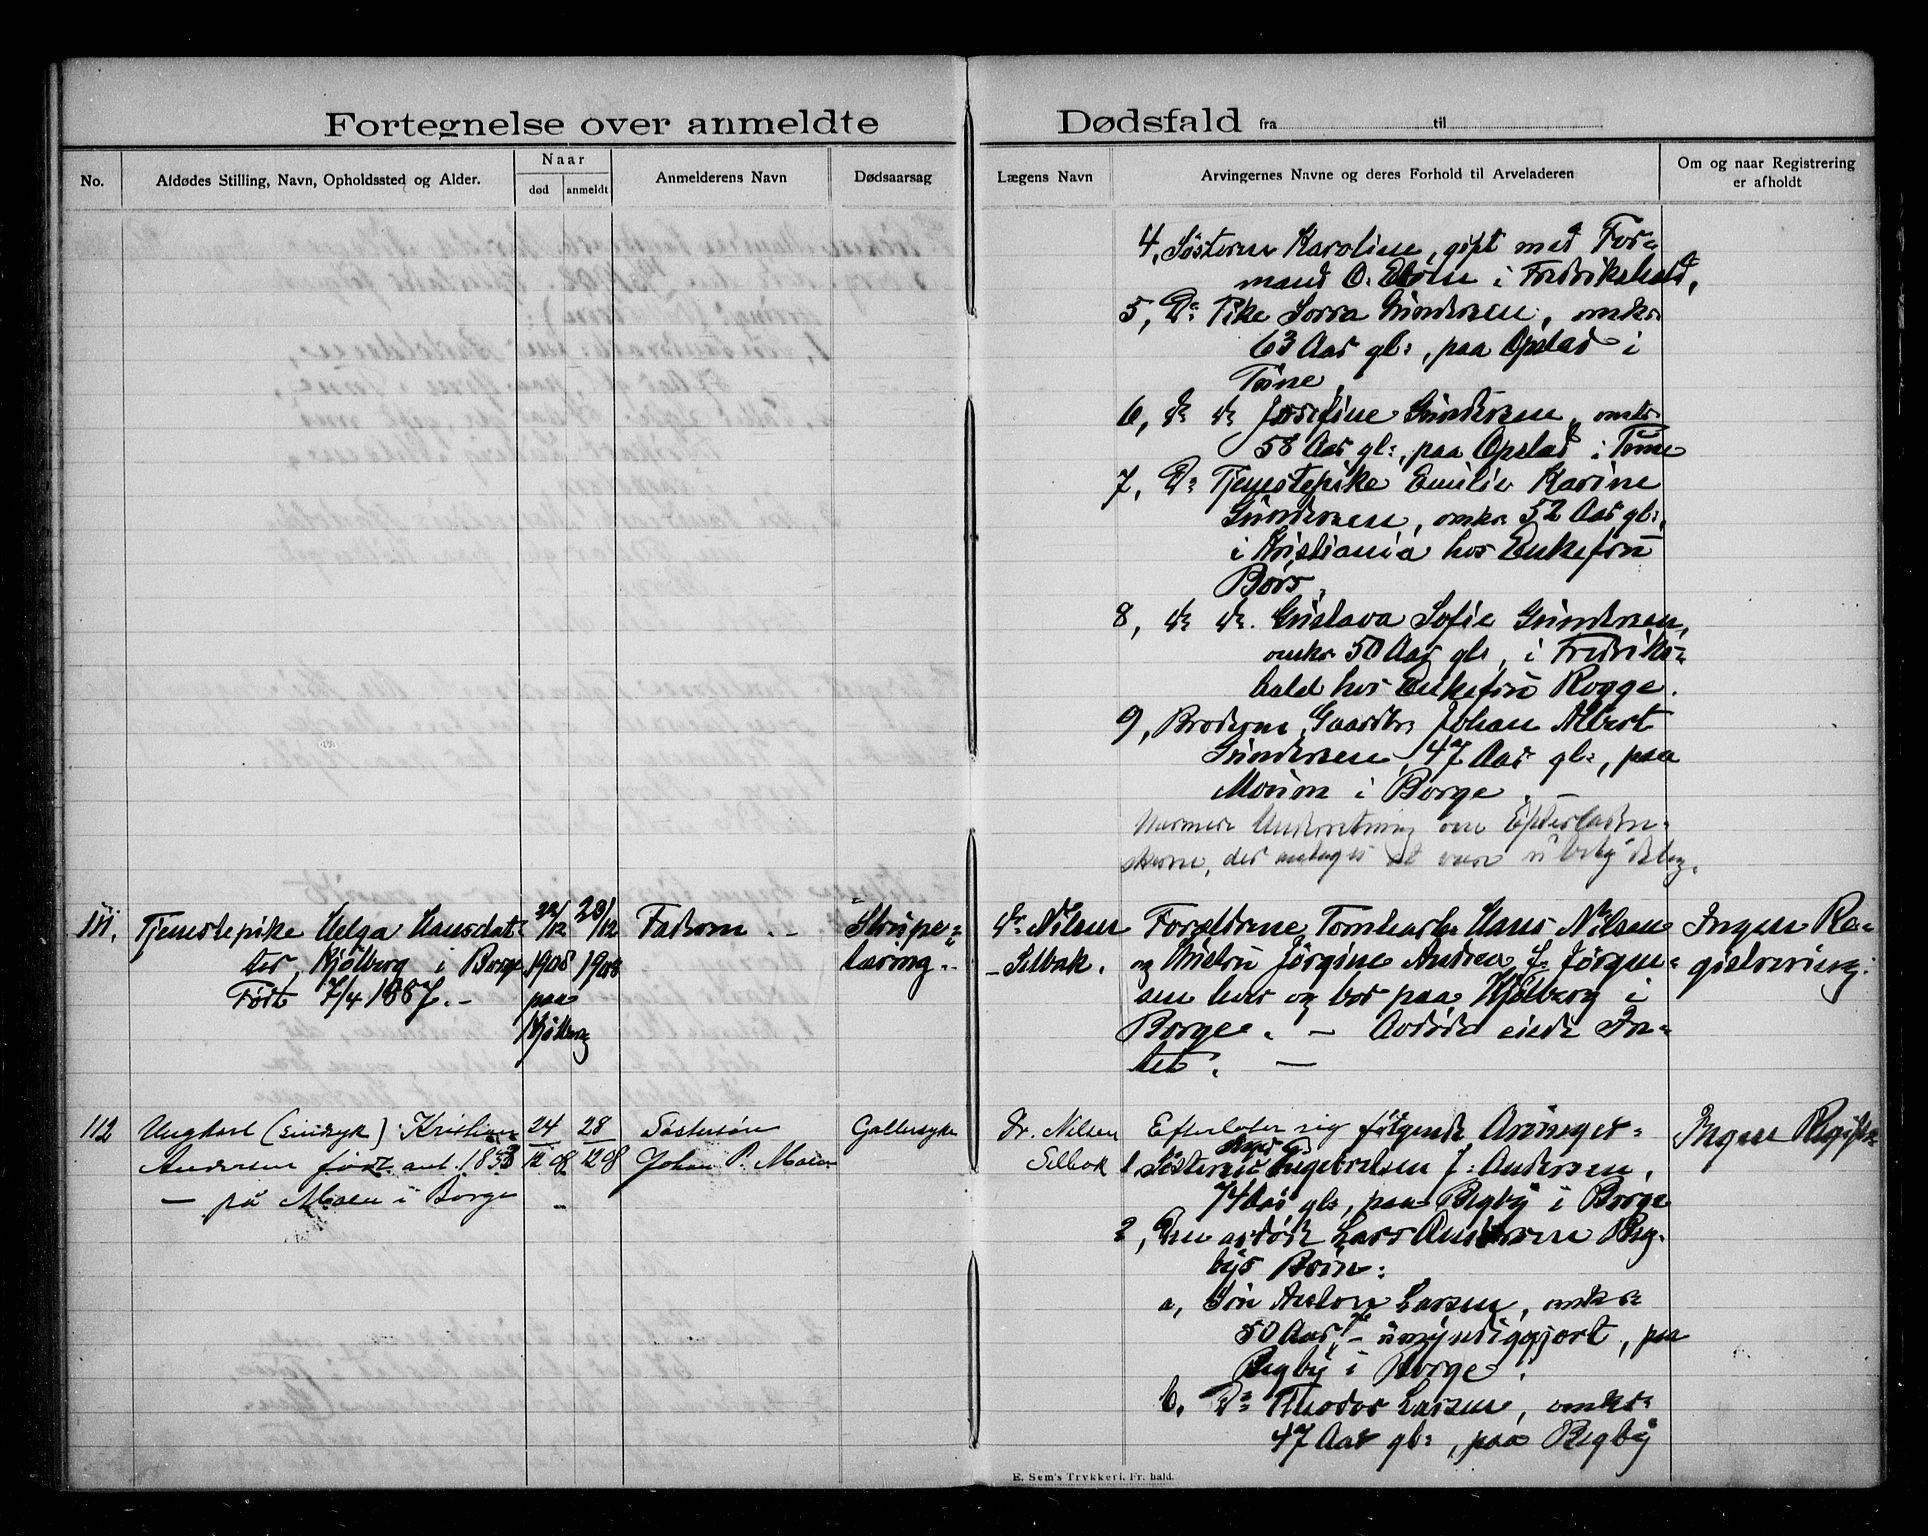 Fortegnelse over anmeldte Dødsfald fra til
No.
Afdødes Stilling, Navn, Opholdssted og Alder.
Naar
død
anmeldt
Anmelderens Navn
Dødsaarsag
Lægens Navn
Arvingernes Navne og deres Forhold til Arveladeren
Om og naar Registrering
er afholdt
4, Søsteren Karoline, gift med For-
mand O. i Fredrikshald,
5, Do Pike Gundersen, omkr
63 Aar gl:, paa Opstad i
Tune,
6, do do Josefine Gundersen, omkr
58 Aar gl:, paa Opstad i Tune
7, Do Tjenestepike Emilie Karine
Gundersen, omkr 52 Aar gl:,
i Kristiania hos Enkefru
Børs,
8, do do. Gustava Sofie Gundersen,
omkr 50 Aar gl, i Fredriks-
hald hos Enkefru Rogge.
9, Broderen, Gaardbr Johan Albert
Gundersen, 47 Aar gl:, paa
Moum i Borge.
Nærmere Underretning om Efterladen-
skerne, der antages at være ubetydelig.
111.
Tjenestepike Helga Hansdat-
ter, Kjølberg i Borge
Født 7/4 1887. -
22/12
1908
paa
Kjølberg
23/12
1908
Faderen. -
Strupe-
tæring. -
Dr Nilsen
- Selbak.
Forældrene, Tomtearb. Hans Nilsen
og Hustru Jørgine Andrea f. Jørgen-
sen hver og bor paa Kjølberg i
Borge. - Avdøde eiede In-
tet. -
Ingen Re-
gistrering.
112
Ungkarl (sindsyk) Kristian
Andersen født ant. 1833
- på Moen i Borge
24
12 08
28
12 08
Søstersøn
Johan P. Moen
Gallesyke
Dr. Nilsen
Selbak
Efterlater sig følgende Arvinger:
1 Søsteren Ingebretsen f: Andersen,
74 Aar gl:, paa Begby i Borge
2, Den avdøde Lars Andersen Beg-
bys Børn:
a, Søn Anton Larsen, omkr
50 Aar, - umyndiggjort, paa
Begby i Borge,
b. Do Theodor Larsen, omkr
47 Aar gl:, paa Begby
Ingen Regist-
E. Sem's Trykkeri, Fr.hald.